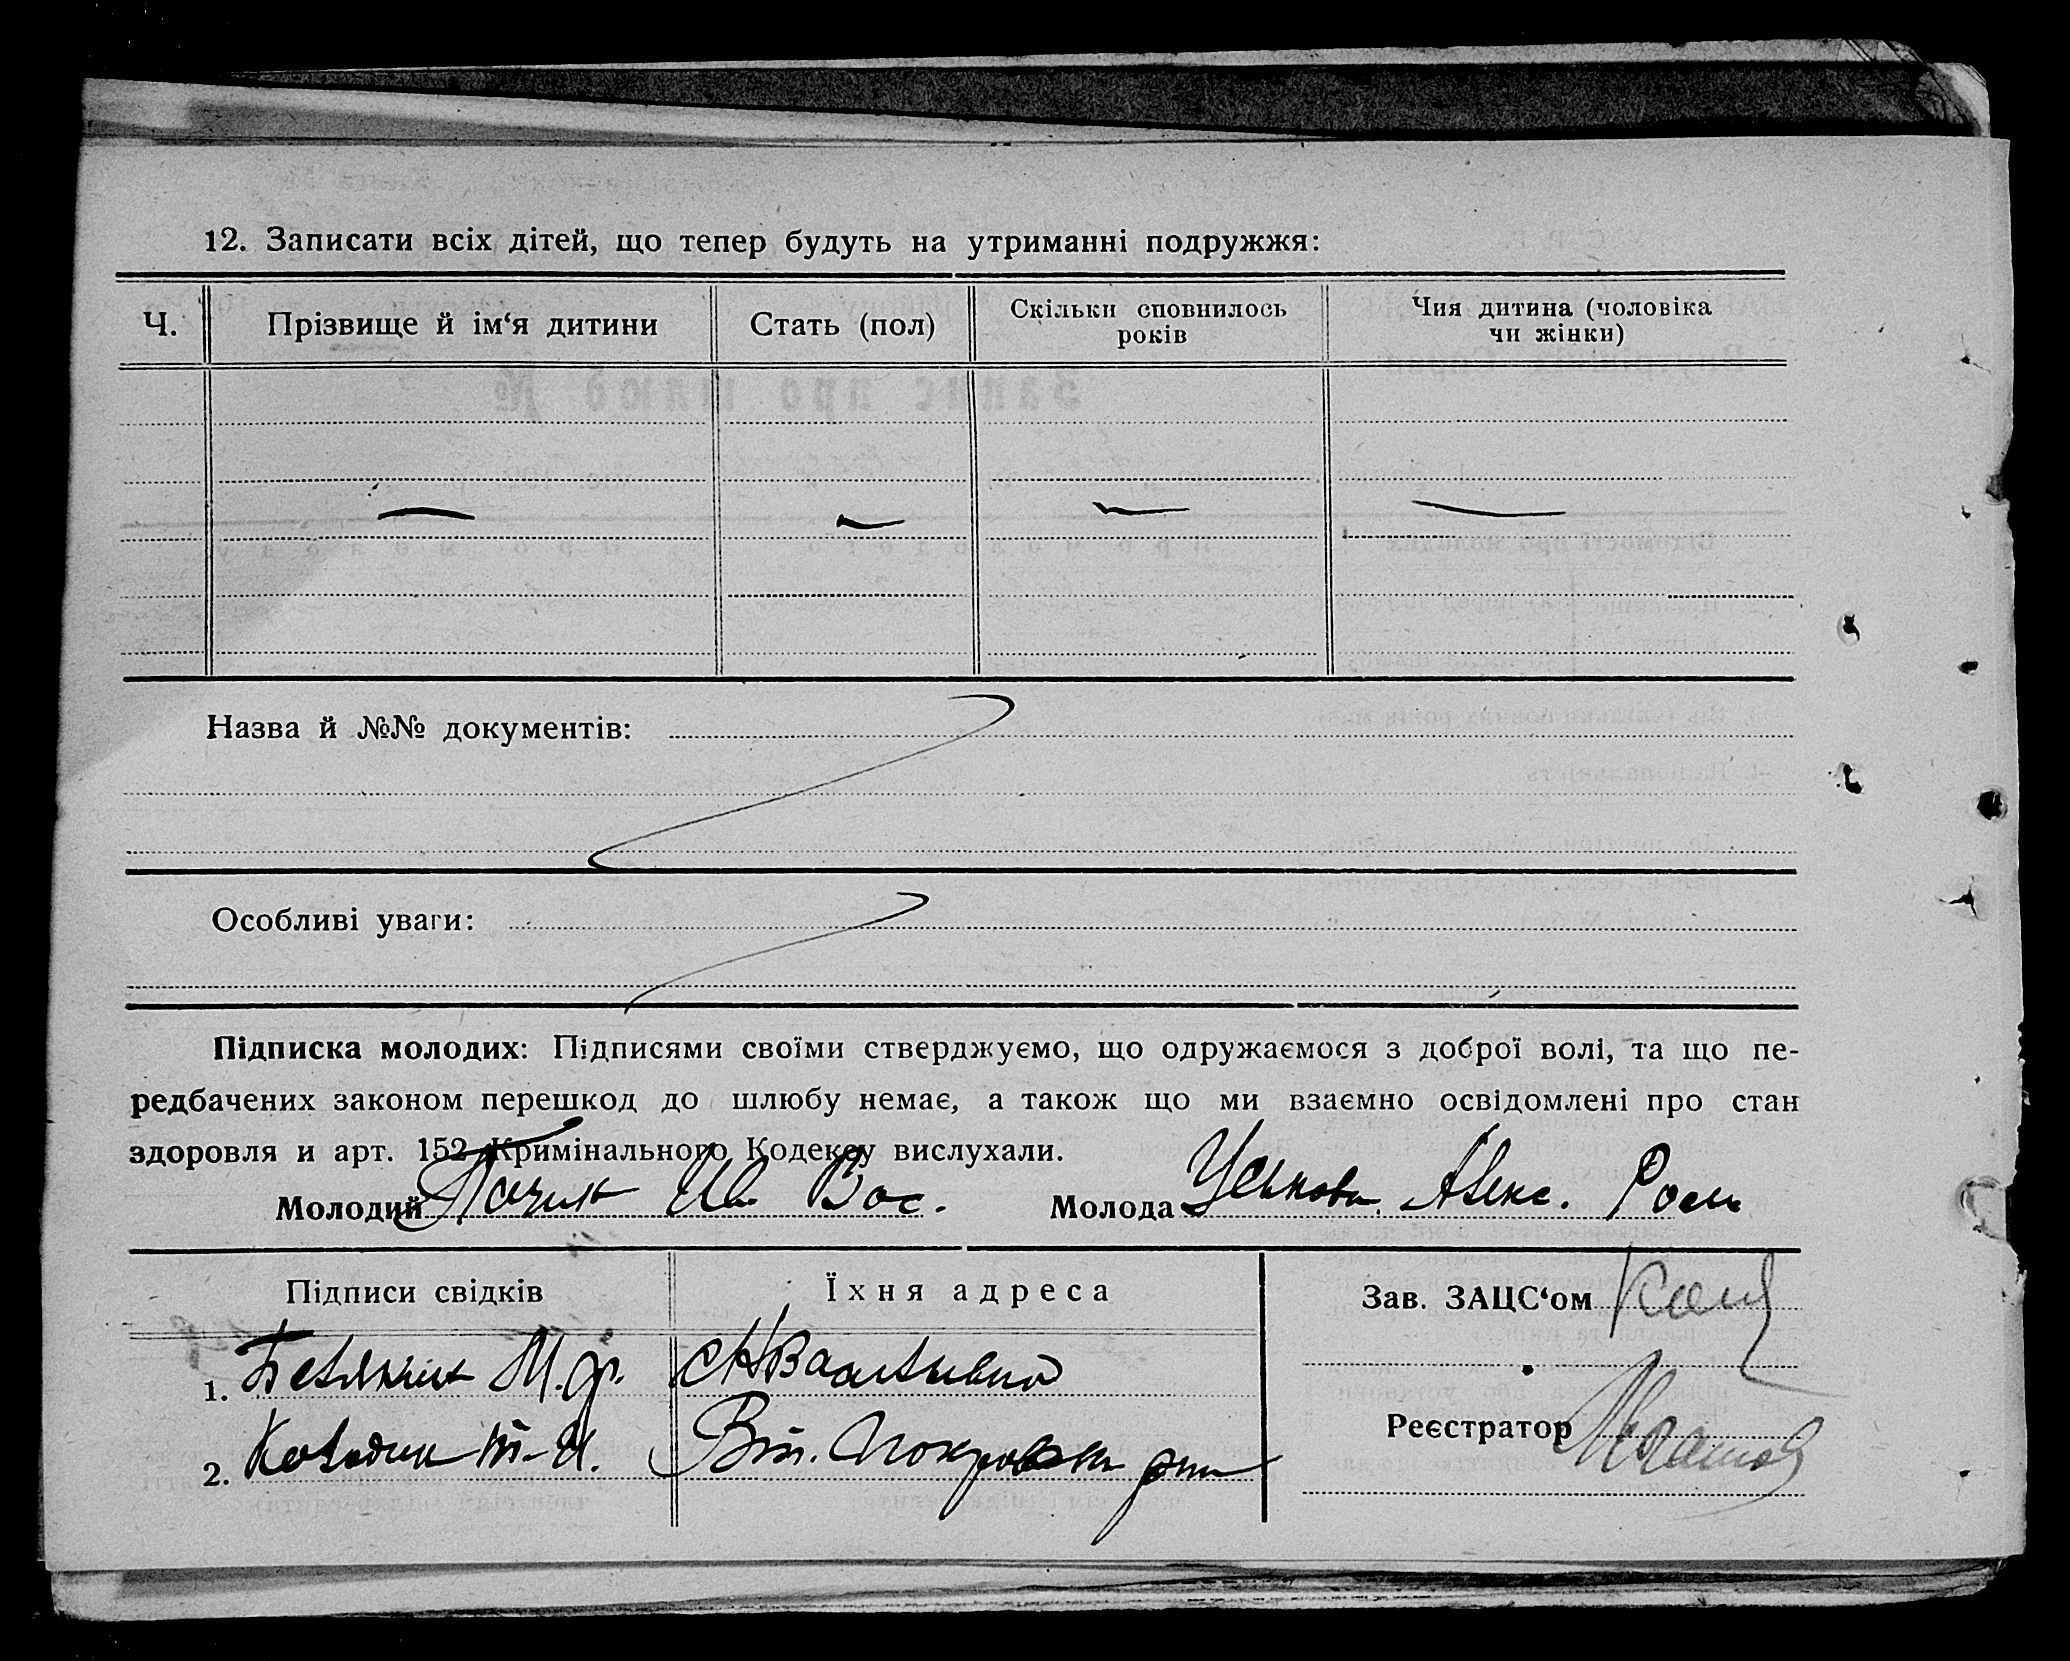 12. Записати всіх дітей, що тепер будуть на утриманні подружжя:
Ч. Прізвище й ім‘я дитини Стать (пол) Скільки сповнилось років Чия дитина (чоловіка чи жінки)
Назва й №№ документів:
Особливі уваги:
Підписка молодих: Підписями своїми стверджуємо, що одружаємося з доброї волі, та що пе-
редбачених законом перешкод до шлюбу немає, а також що ми взаємно освідомлені про стан
здоровля и арт. 152 Кримінального Кодексу вислухали.
Молодий Ив. Вас. Молода Алекс.
Підписи свідків Їхня адреса Зав. ЗАЦС‘ом
1. М.
2. Покровка
Реєстратор